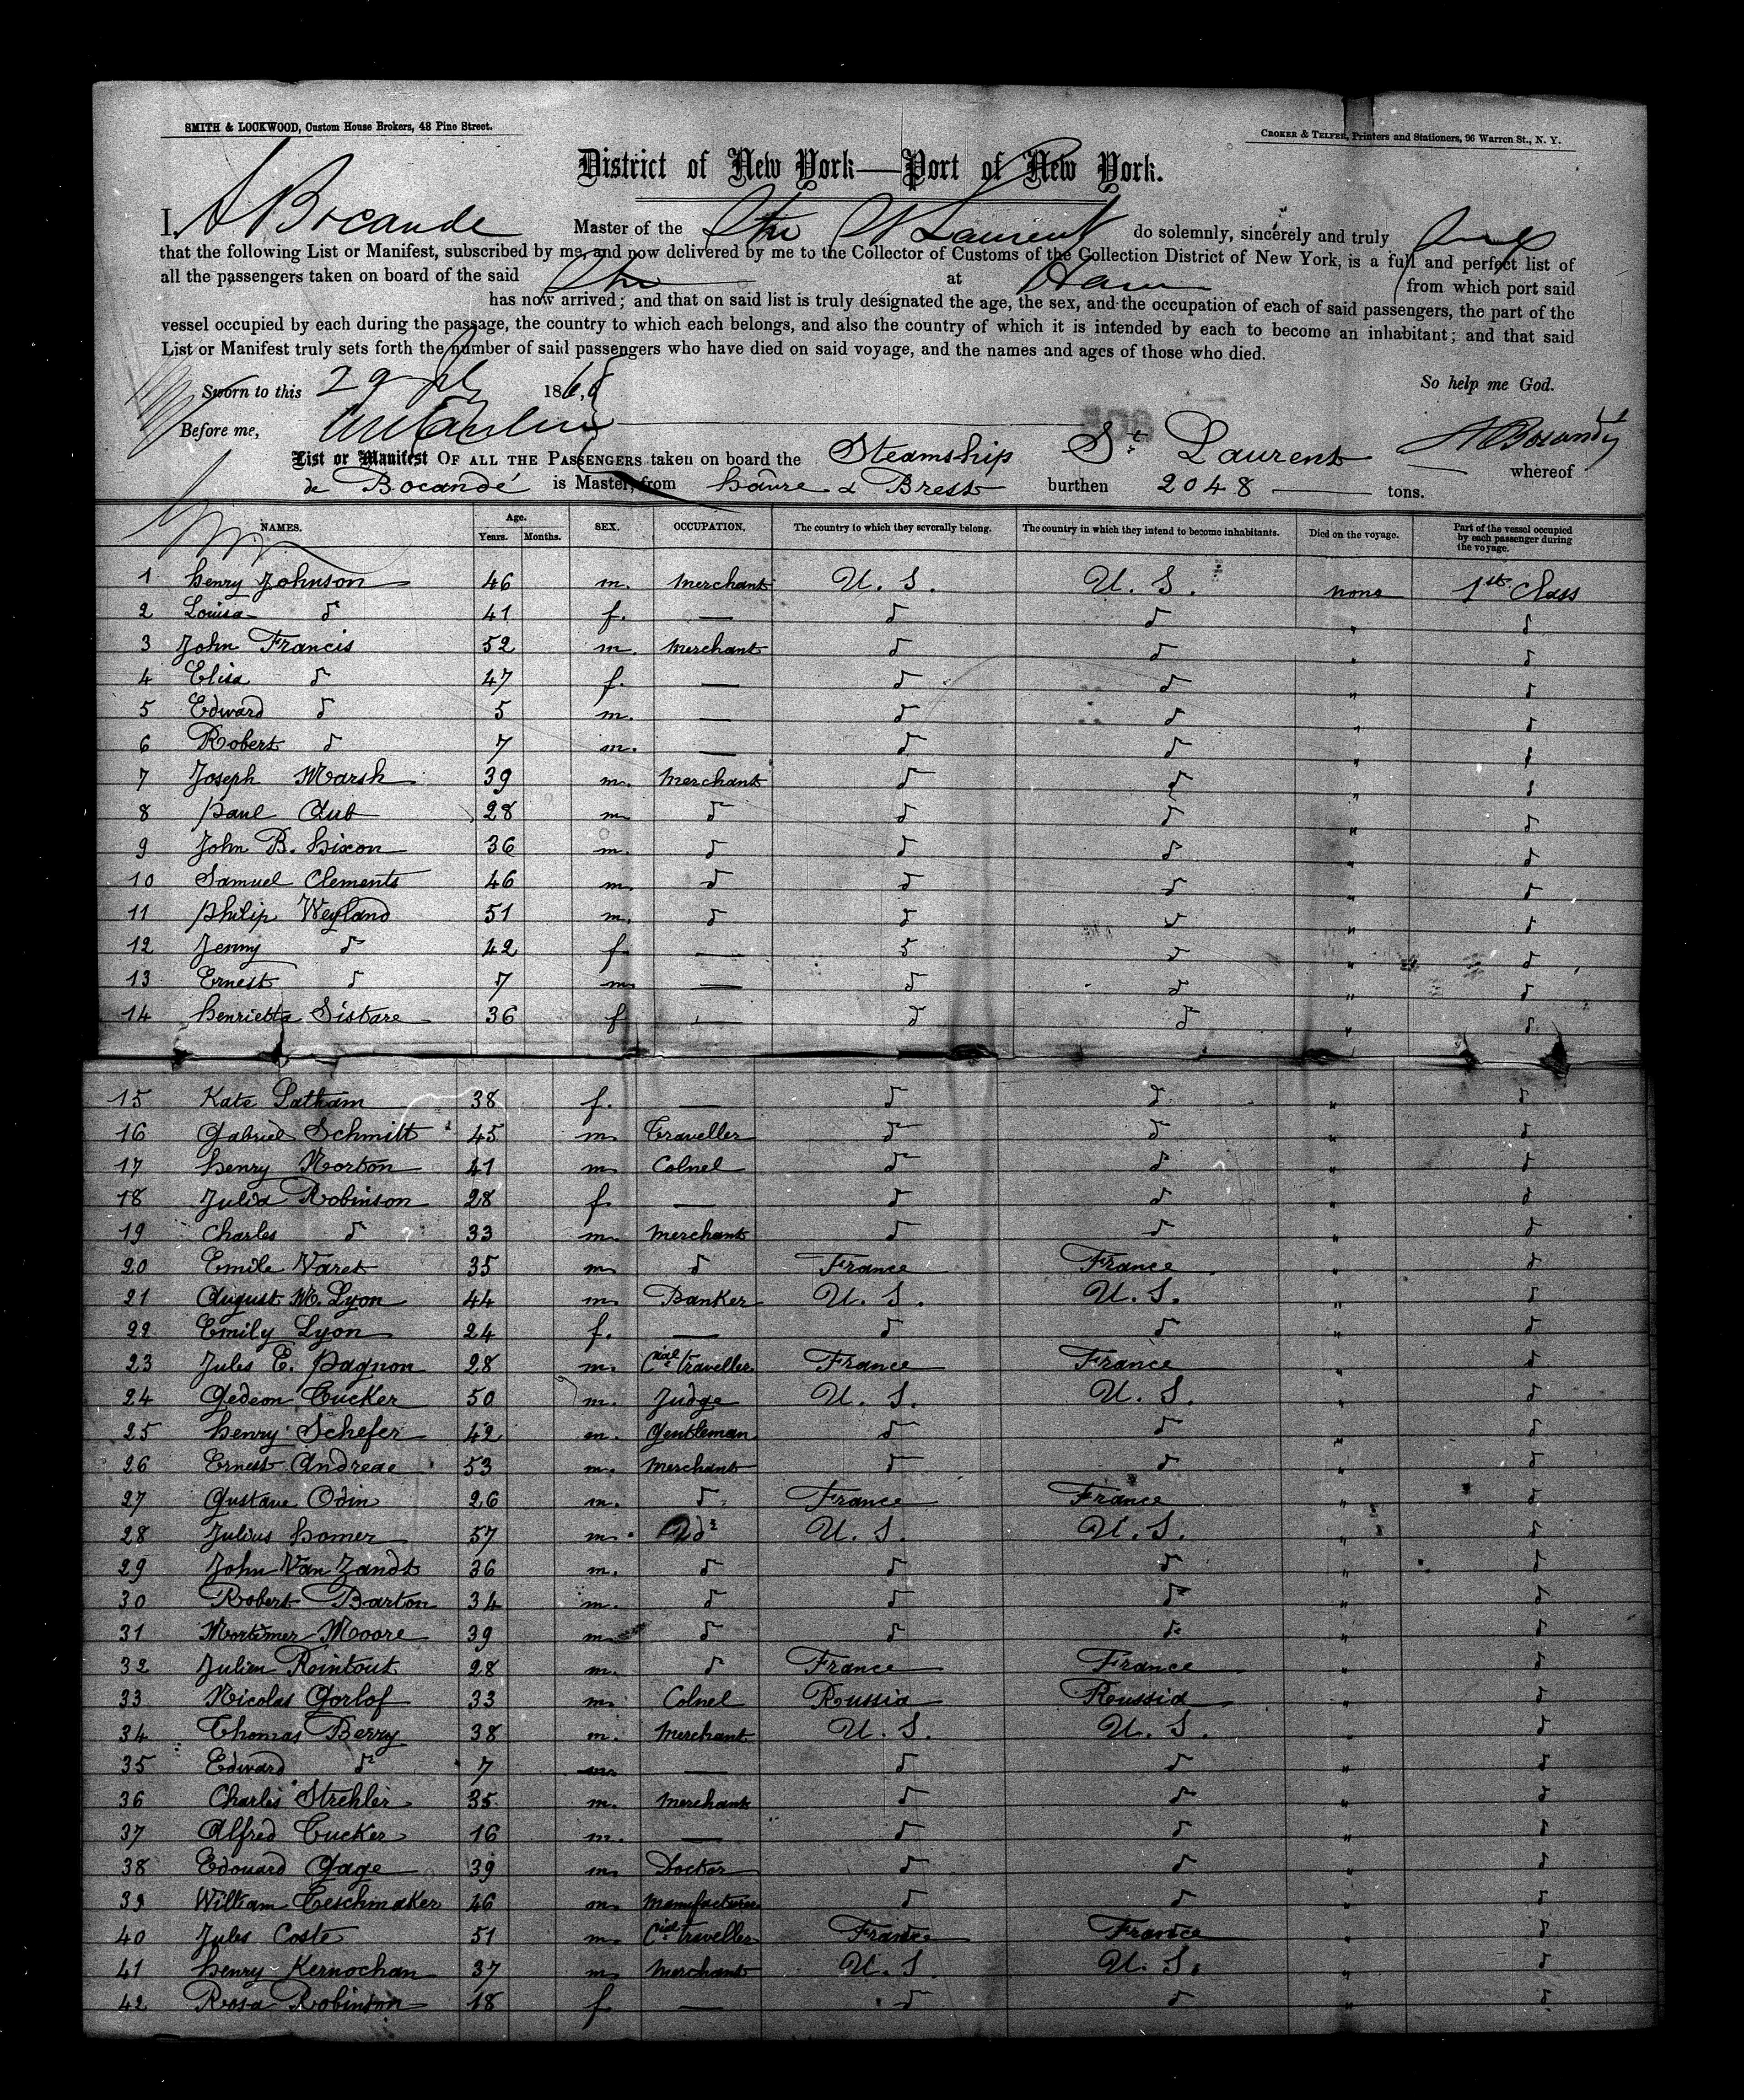 SMITH & LOCKWOOD, Custom House Brokers, 48 Pine Street.
CROKER & TELFER, Printers and Stationers, 96 Warren St., N. Y.
District of New York—Port of New York.
I, A Bocande Master of the Str St Laurent do solemnly, sincerely and truly
that the following List or Manifest, subscribed by me, and now delivered by me to the Collector of Customs of the Collection District of New York, is a full and perfect list of
all the passengers taken on board of the said Str at Havre from which port said
has now arrived; and that on said list is truly designated the age, the sex, and the occupation of each of said passengers, the part of the
vessel occupied by each during the passage, the country to which each belongs, and also the country of which it is intended by each to become an inhabitant; and that said
List or Manifest truly sets forth the number of said passengers who have died on said voyage, and the names and ages of those who died.
So help me God.
Sworn to this 29 1868
Before me,
List or Manifest OF ALL THE PASSENGERS taken on board the Steamship St Laurent whereof
de Bocandé is Master, from havre & Brest burthen 2048 tons.
NAMES. Age. Years. Months. SEX. OCCUPATION. The country to which they severally belong. The country in which they intend to become inhabitants. Died on the voyage. Part of the vessel occupied by each passenger during the voyage.
1 henry Johnson 46 m. merchant U. S. U. S. none 1st Class
2 Louisa d 41 f. — d d " d
3 John Francis 52 m. merchant d d " d
4 Elisa d 47 f. — d d " d
5 Edward d 5 m. — d d " d
6 Robert d 7 m. — d d " d
7 Joseph Marsh 39 m. merchant d d " d
8 paul Aub 28 m d d d " d
9 John B. hixon 36 m. d d d " d
10 Samuel Clements 46 m. d d d " d
11 philip Weyland 51 m. d d d " d
12 Jenny d 42 f — d d " d
13 Ernest d 7 m — d d " d
14 henrietta Sistare 36 f — d d " d
15 Kate Latham 38 f. — d d " d
16 Gabriel Schmitt 45 m. Traveller d d " d
17 henry Norton 41 m Colnel d d " d
18 Julia Robinson 28 f. — d d " d
19 Charles d 33 m. merchant d d " d
20 Emile Varet 35 m d France France " d
21 August M. Lyon 44 m. Banker U. S. U. S. " d
22 Emily Lyon 24 f. — d d " d
23 Jules E. pagnon 28 m. Cial traveller France France " d
24 Gedeon Tucker 50 m. Judge U. S. U. S. " d
25 henry Schefer 42 m. gentleman d d " d
26 Ernest Andreae 53 m. merchant d d " d
27 Gustave Odin 26 m. d France France " d
28 Julius homer 57 m. do U. S. U. S. " d
29 John Van Zandt 36 m. d d d " d
30 Robert Barton 34 m. d d d " d
31 Mortimer Moore 39 m d d d " d
32 Julien Rintout 28 m. d France France " d
33 Nicolas Gorlof 33 m. Colnel Russia Russia " d
34 Thomas Berry 38 m. merchant U. S. U. S. " d
35 Edward d 7 m — d d " d
36 Charles Strehler 35 m. merchant d d " d
37 Alfred Tucker 16 m. — d d " d
38 Edouard Gage 39 m Doctor d d " d
39 William Teschmaker 46 m. manufacturer d d " d
40 Jules Coste 51 m. Cial traveller France France " d
41 henry Kernochan 37 m merchant U. S. U. S. " d
42 Rosa Robinson 18 f — d d " d